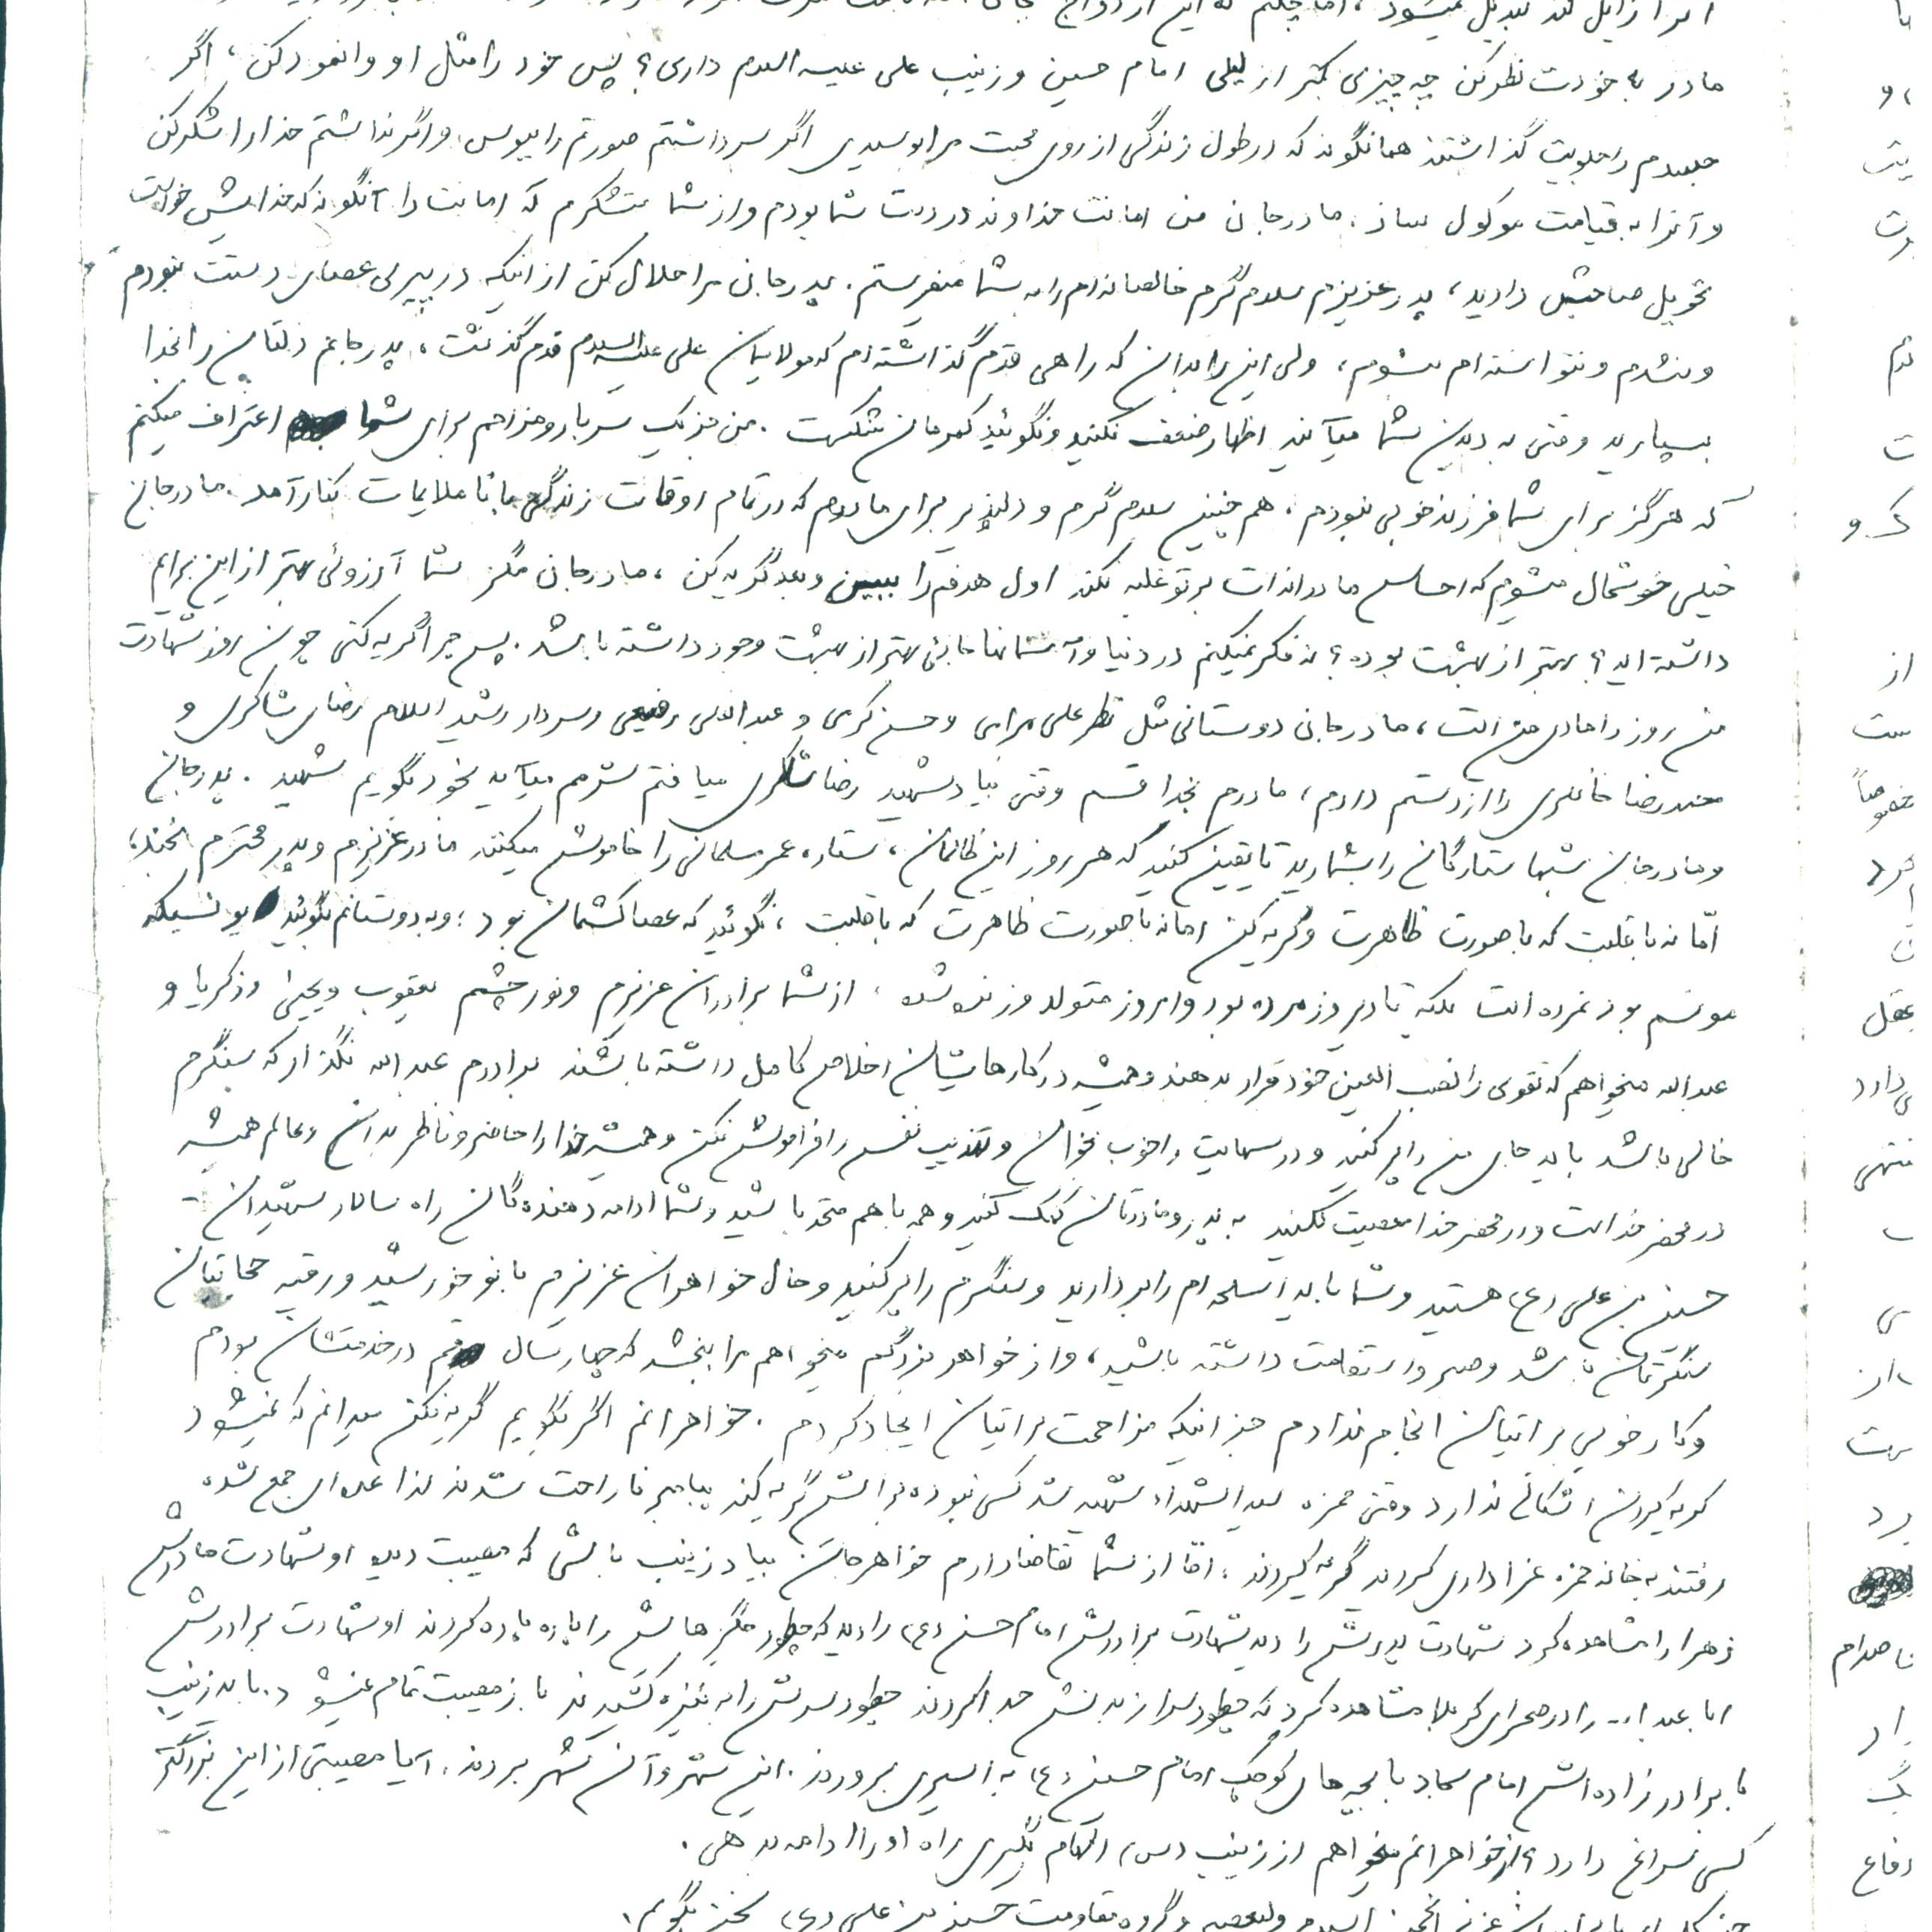 مادر به خودت نظر کن چه چیزی کمتر از لیلی امام حسین و زینب علی علیه السلام داری؟ پس خود را مثل او وانمود کن، اگر
جسدم را جلویت گذاشتند همانگونه که در طول زندگی از روی محبت مرا بوسیدی اگر سر داشتم صورتم را ببوس و اگر نداشتم خدا را شکر کن
و آنرا به قیامت موکول ساز. مادر جان من امانت خداوند در دست شما بودم و از شما متشکرم که امانت را آنگونه که خدایش خواست
تحویل صاحبش دادید، پدر عزیزم سلام گرم خالصانه ام را به شما میفرستم. پدر جان مرا حلال کن از اینکه در پیری عصای دستت نبودم
و نشدم و نتوانسته ام بشوم، ولی این را بدان که راهی قدم گذاشته ام که مولایمان علی علیه السلام قدم گذاشت، پدر جانم دلتان را بخدا
بسپارید وقتی به دیدن شما میآیند اظهار ضعف نکنید و نگوئید کمرمان شکست. من جز یک سربار و مزاحم برای شما اعتراف میکنم
که هرگز برای شما فرزند خوبی نبودم. هم چنین سلام گرم و دلپذیر برای مادرم که در تمام اوقات زندگی با ناملایمات کنار آمد. مادر جان
خیلی خوشحال میشوم که احساس مادرانه ات بر تو غلبه نکند اول هدفم را ببین و بعد گریه کن، مادر جان مگر شما آرزوئی بهتر از این برایم
داشته اید؟ بهتر از بهشت بوده؟ نه فکر نمیکنم در دنیا و آسمانها جائی بهتر از بهشت وجود داشته باشد. پس چرا گریه کنی چون روز شهادت
من روز دامادی من است، مادر جان دوستانی مثل نظر علی و حسن کرمی و عبدالله رفیعی و سردار رشید اسلام رضای شاکری و
محمد رضا را از دست دادم، مادرم بخدا قسم وقتی بیاد شهید رضا شاکری میافتم شرمم میآید بخود بگویم شهید. پدر جان
و مادر جان شبها ستارگان را بشمارید تا یقین کنید که هر روز این ظالمان، ستاره عمر مسلمانی را خاموش میکنند مادر عزیزم و پدر محترم بخند،
امّا نه با قلبت که با صورت ظاهرت و گریه کن اما نه با صورت ظاهرت که با قلبت، نگوئید که عصا کشمان بود؛ و به دوستانم بگوئید یونسیکه
مونسم بود نمرده است بلکه تا دیروز مرده بود و امروز متولد و زنده شده. از شما برادران عزیزم و نور چشم یعقوب و یحیی و زکریا و
عبدالله میخواهم که تقوی را نصب العین خود قرار بدهند و همیشه در کارهایشان اخلاص کامل داشته باشند برادرم عبدالله نگذار که سنگرم
خالی باشد باید جای من را پر کنید و درسهایت را خوب بخوان و تهذیب نفس را فراموش نکن و همیشه خدا را حاضر و ناظر بدان و عالم همیشه
در محضر خداست و در محضر خدا معصیت نکنید به پدر و مادرتان کمک کنید و همه با هم متحد باشید و شما ادامه دهنده گان راه سالار شهیدان
حسین بن علی (ع) هستید و شما باید اسلحه ام را بردارید و سنگرم را پر کنید و حال خواهران عزیزم بانو خورشید و رقیه حجابتان
سنگرتان باشد و صبر و استقامت داشته باشید، و از خواهر بزرگم میخواهم مرا ببخشد که چهار سال در خدمتشان بودم
و کار خوبی برایتان انجام ندادم جز اینکه مزاحمت برایتان ایجاد کردم. خواهرانم اگر بگویم گریه نکن میدانم که نمیشود
گریه کردن اشکالی ندارد وقتی حمزه سید الشهداء شهید شد کسی نبود برایش گریه کند پیامبر ناراحت شدند لذا عده ای جمع شده
رفتند به خانه حمزه عزاداری کردند گریه کردند. امّا از شما تقاضا دارم خواهر جان بیاد زینب باشی که مصیبت دید او شهادت مادرش
زهرا را مشاهده کرد شهادت پدرش را دید شهادت برادرش امام حسن (ع) را دید که چطور جگرهایش را پاره پاره کردند او شهادت برادرش
ابا عبدا... را در صحرای کربلا مشاهده کرد که چطور سر از بدنش جدا کردند چطور سرش را به نیزه کشیدند باز مصیبت تمام نمیشود. باید زینب
با برادر زاده اش امام سجاد با بچه های کوچک امام حسین (ع) به اسیری بروند. این شهر و آن شهر بردند. آیا مصیبتی از این بزرگتر
کسی سراغ دارد؟ از خواهرانم میخواهم از زینب (س) الهام بگیری راه او را ادامه بدهی.